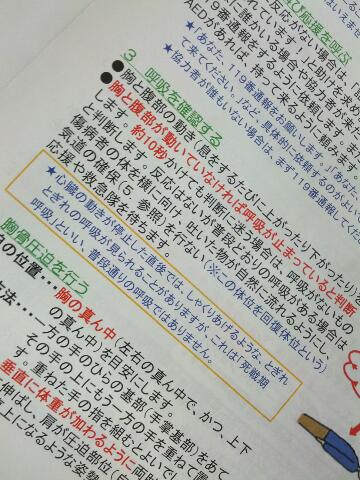 び応援を呼ぶ
反応がない場合は、
」と助けを求め
に誰かいる場合や協力者が来
19番通報をするように依頼し
AEDがあれば、持って来るように頼
★「あなた、119番通報をお願いします。」「あな
て来てください。」など、具体的に依頼するの
★協力者が誰もいない場合は、まず119番通報してくだ
3 呼吸を確認する
●胸と腹部の動き（息をするたびに上がったり下がったり
●胸と腹部が動いていなければ呼吸が止まっていると判断
します。約10秒かけても判断に迷う場合は、呼吸がないもの
と判断します。反応はないが普段どおりの呼吸がある場合は、
気道の確保（5．参照）を行ない
傷病者の体を横に向け、吐いた物が自然に流れるようにし、
応援や救急隊を待ちます。（※この体位を回復体位という）
★心臓の動きが停止した直後では、しゃくりあげるような、とぎれ
とぎれの呼吸が見られることがありますが、これは「死戦期
呼吸」といい、普段通りの呼吸ではありません。
胸骨圧迫を行う
の位置・・・胸の真ん中（左右の真ん中で、かつ、上下
の真ん中）を目安にします。
方法・・・一方の手のひらの基部（手掌基部）をあて
その手の上にもう一方の手を重ねて置
す。重ねた手の指を組むとよいで
垂直に体重が加わるように両
伸ばし、肩が圧迫部位（
上になるような姿勢